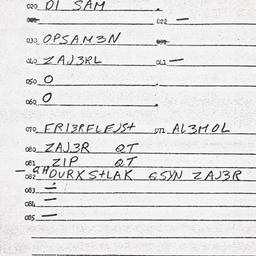 020 DI SAM
022 —
030 OPSAM3N
040 ZAJ3RL 041 —
050 O
060 O
070 FRI3RFLEJS+ 071 AL3MOL
080 ZAJ3R QT
081 ZIP QT
082 OURXS+LAK QSYN ZAJ3R
083 —
084 —
085 —